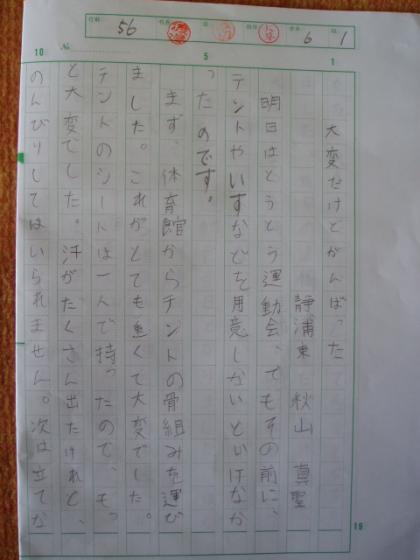 56
6
1
10
No.
5
1
大変だけどがんばった
静浦東 秋山 真聖
明日はとうとう運動会、でもその前に、
テントやいすなどを用意しないといけなか
ったのです。
まず、体育館からテントの骨組みを運び
ました。これがとても重くて大変でした。
テントのシートは一人で持ったので、もっ
と大変でした。汗がたくさん出たけれど、
のんびりしてはいられません。次は立てな